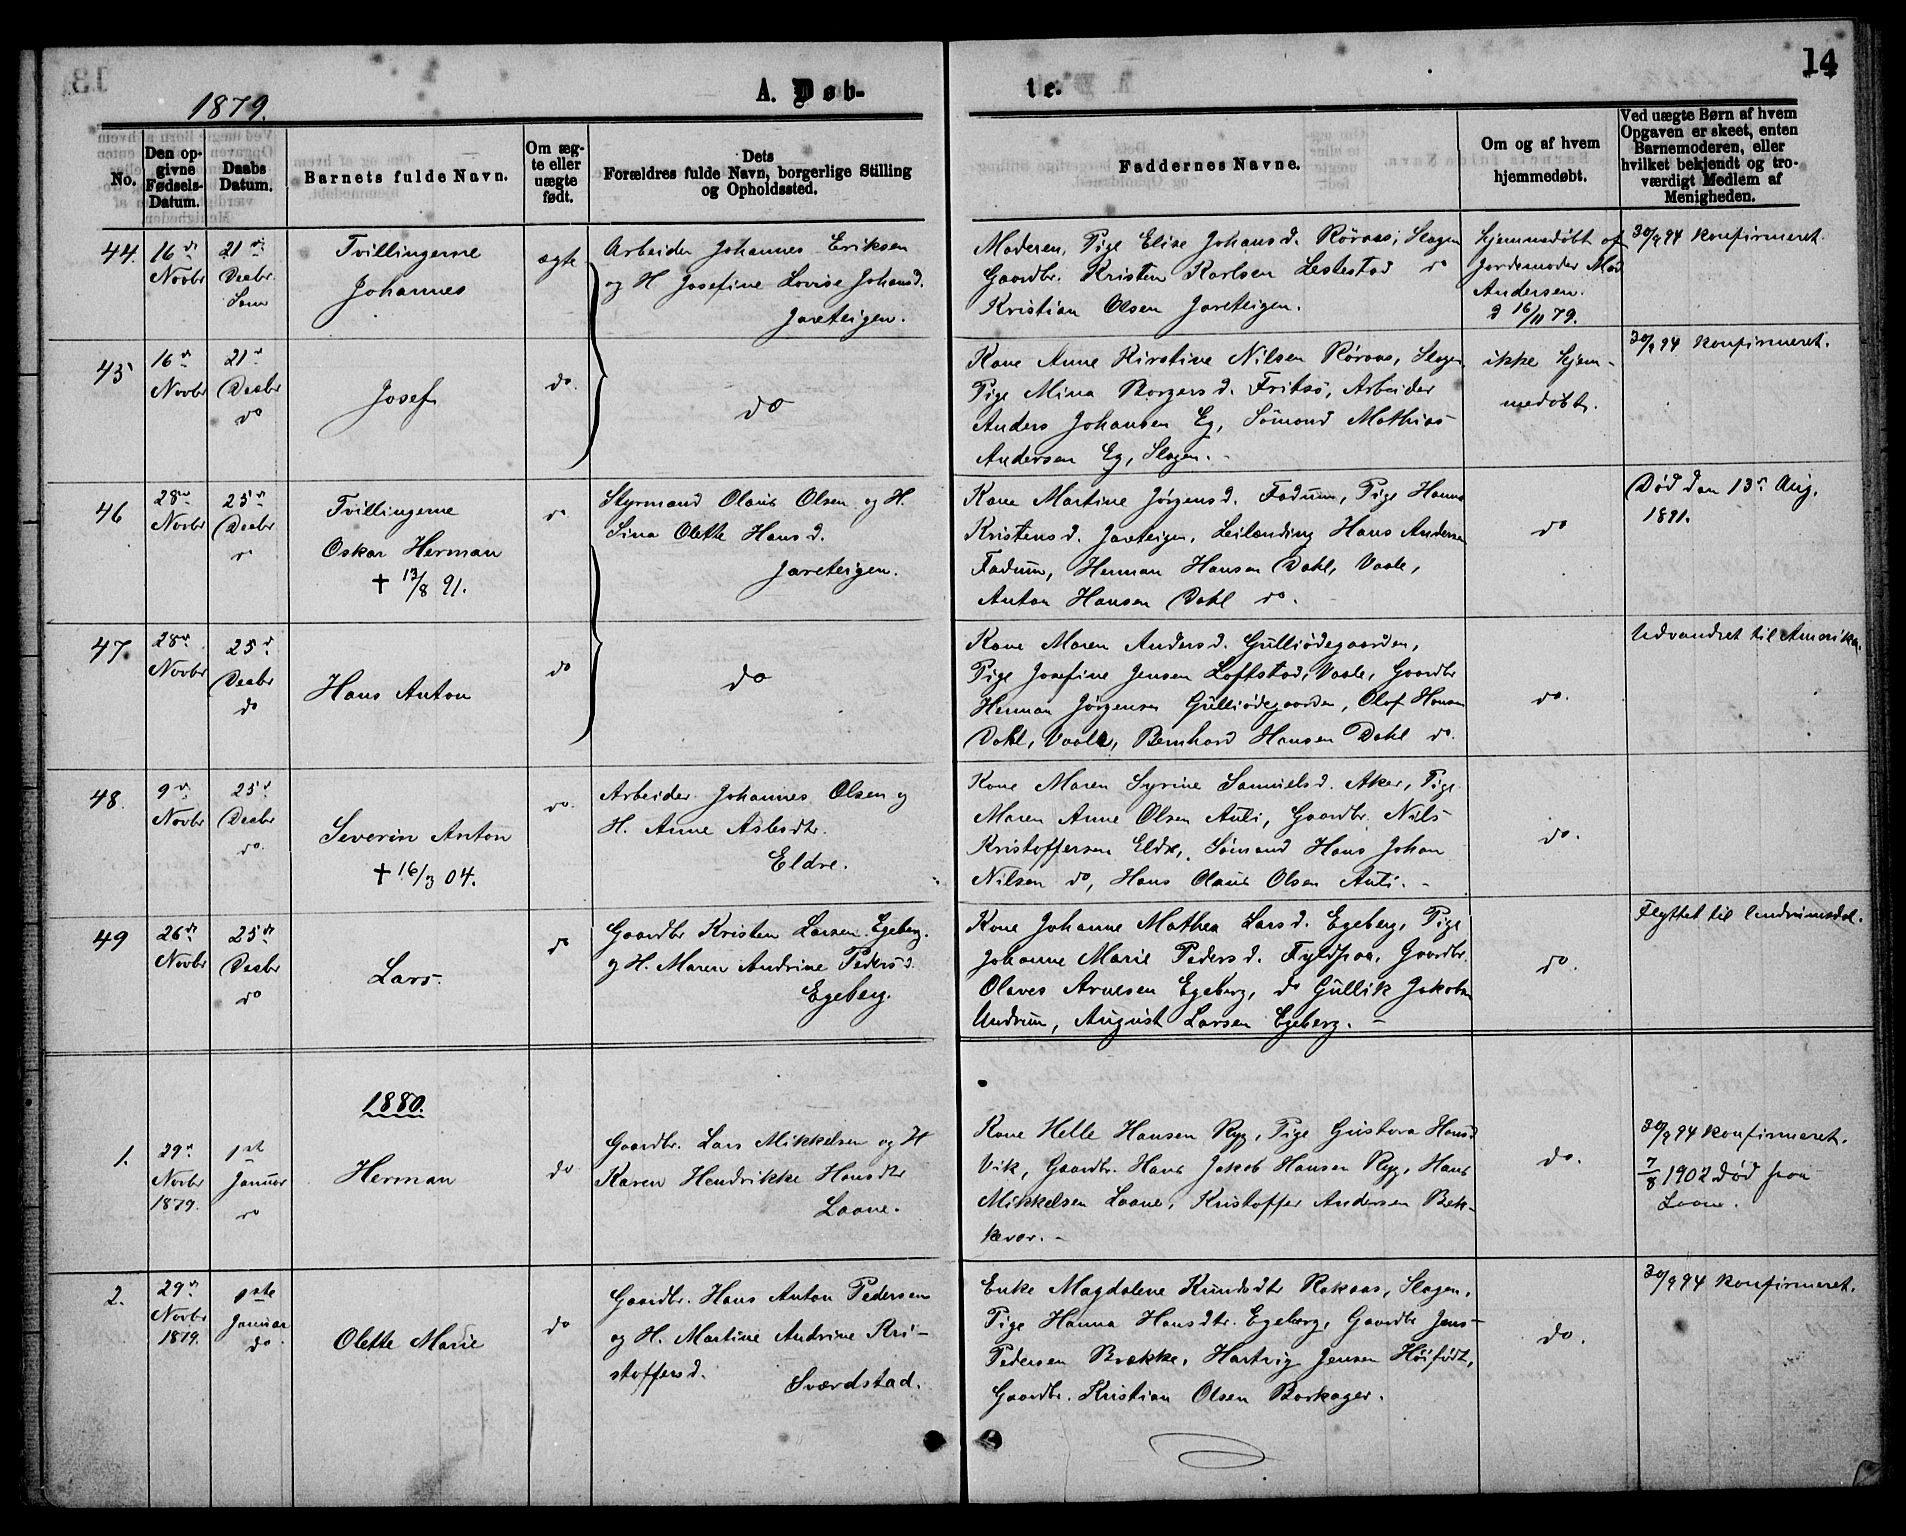 14
1879.
A. Døbte.
No.
Den opgivne Fødsels-Datum.
Daabs Datum.
Barnets fulde Navn.
Om ægte eller uægte født.
Dets Forældres fulde Navn, borgerlige Stilling og Opholdssted.
Faddernes Navne.
Om og af hvem hjemmedøbt.
Ved uægte Børn af hvem Opgaven er skeet, enten Barnemoderen, eller hvilket bekjendt og troværdigt Medlem af Menigheden.
44.
16de
Novbr
21de
Decbr
Sem
Tvillingerne
Johannes
ægte
Arbeider Johannes Eriksen
og H Josefine Lovise Johansd.
Jareteigen.
Moderen, Pige Elise Johansd. Røraas, Slagen
Gaardbr. Kristen Karlsen Lestestad do
Kristian Olsen Jareteigen.
hjemmedøbt af
Jordemoder Mad
Andersen.
d 16/11 79.
30/9 94 konfirmeret.
45
16de
Novbr
21de
Decbr
do
Josef
do.
do
Kone Anne Kirstine Nilsen Røraas, Slagen
Pige Mina Borgersd. Fritsø, Arbeider
Anders Johansen Eg, Sømand Mathias
Andersen Eg, Slagen.-
ikke hjem-
medøbt.
30/9 94 konfirmeret.
46
28de
Novbr
25de
Decbr
do
Tvillingerne
Oskar Herman
† 13/8 91.
do
Styrmand Olaus Olsen og H.
Sina Olette Hansd.
Jareteigen.
Kone Martine Jørgensd. Fadum, Pige Hanna
Kristensd. Jareteigen, Leilænding Hans Andersen
Fadum, Herman Hansen Dahl, Vaale,
Anton Hansen Dahl do.
do
Død den 13de Aug.
1891.
47
28de
Novbr
25de
Decbr
do
Hans Anton
do
do
Kone Maren Andersd. Gulliødegaarden,
Pige Josefine Jensen Loftstad, Vaale, Gaardbr
Herman Jørgensen Gulliødegaarden, Olaf Hansen
Dahl, Vaale, Bernhard Hansen Dahl do.
do.
Udvandret til Amerika.
48.
9de
Novbr
25de
Decbr
do.
Severin Anton
† 16/3 04.
do.
Arbeider Johannes Olsen og
H. Anne Aslesdtr.
Eldre.
Kone Maren Syrine Samuelsd. Aker, Pige
Maren Anne Olsen Auli, Gaardbr. Nils
Kristoffersen Eldre, Sømand Hans Johan
Nilsen do, Hans Olaus Olsen Auli.-
do.
49
26de
Novbr
25de
Decbr
do
Lars.
do
Gaardbr Kristen Larsen Egeberg.
og H. Maren Andrine Pedersd.
Egeberg.
Kone Johanne Mathea Larsd. Egeberg, Pige
Johanne Marie Pedersd. Fyldpaa, Gaardbr.
Olaves Arnesen Egeberg, do Gullik Jakobsen
Undrum, August Larsen Egeberg.-
do.
Flyttet til Undrumsdal.
1880.
1.
29de
Novbr
1879.
1ste
Januar
do
Herman
do
Gaardbr. Lars Mikkelsen og H
Karen Hendrikke Hansdtr
Laane.
Kone Helle Hansen Ryg, Pige Gustava Hansd
Vik, Gaardbr. Hans Jakob Hansen Ryg, Hans
Mikkelsen Laane, Kristoffer Andersen Bek-
kevar.-
do.
30/9 94 konfirmeret.
7/8 1902 død paa
Laane.
2.
29de
Novbr
1879.
1ste
Januar
do.
Olette Marie
do
Gaardbr. Hans Anton Pedersen
og H. Martine Andrine Kri-
stoffersd.
Sværdstad.
Enke Magdalene Knudsdtr Rakaas, Slagen,
Pige Hanna Hansdtr. Egeberg, Gaardbr Jens
Pedersen Brække, Hartvig Jensen Høifødt,
Gaardbr. Kristian Olsen Borkager.
do.
30/9 94 konfirmeret.